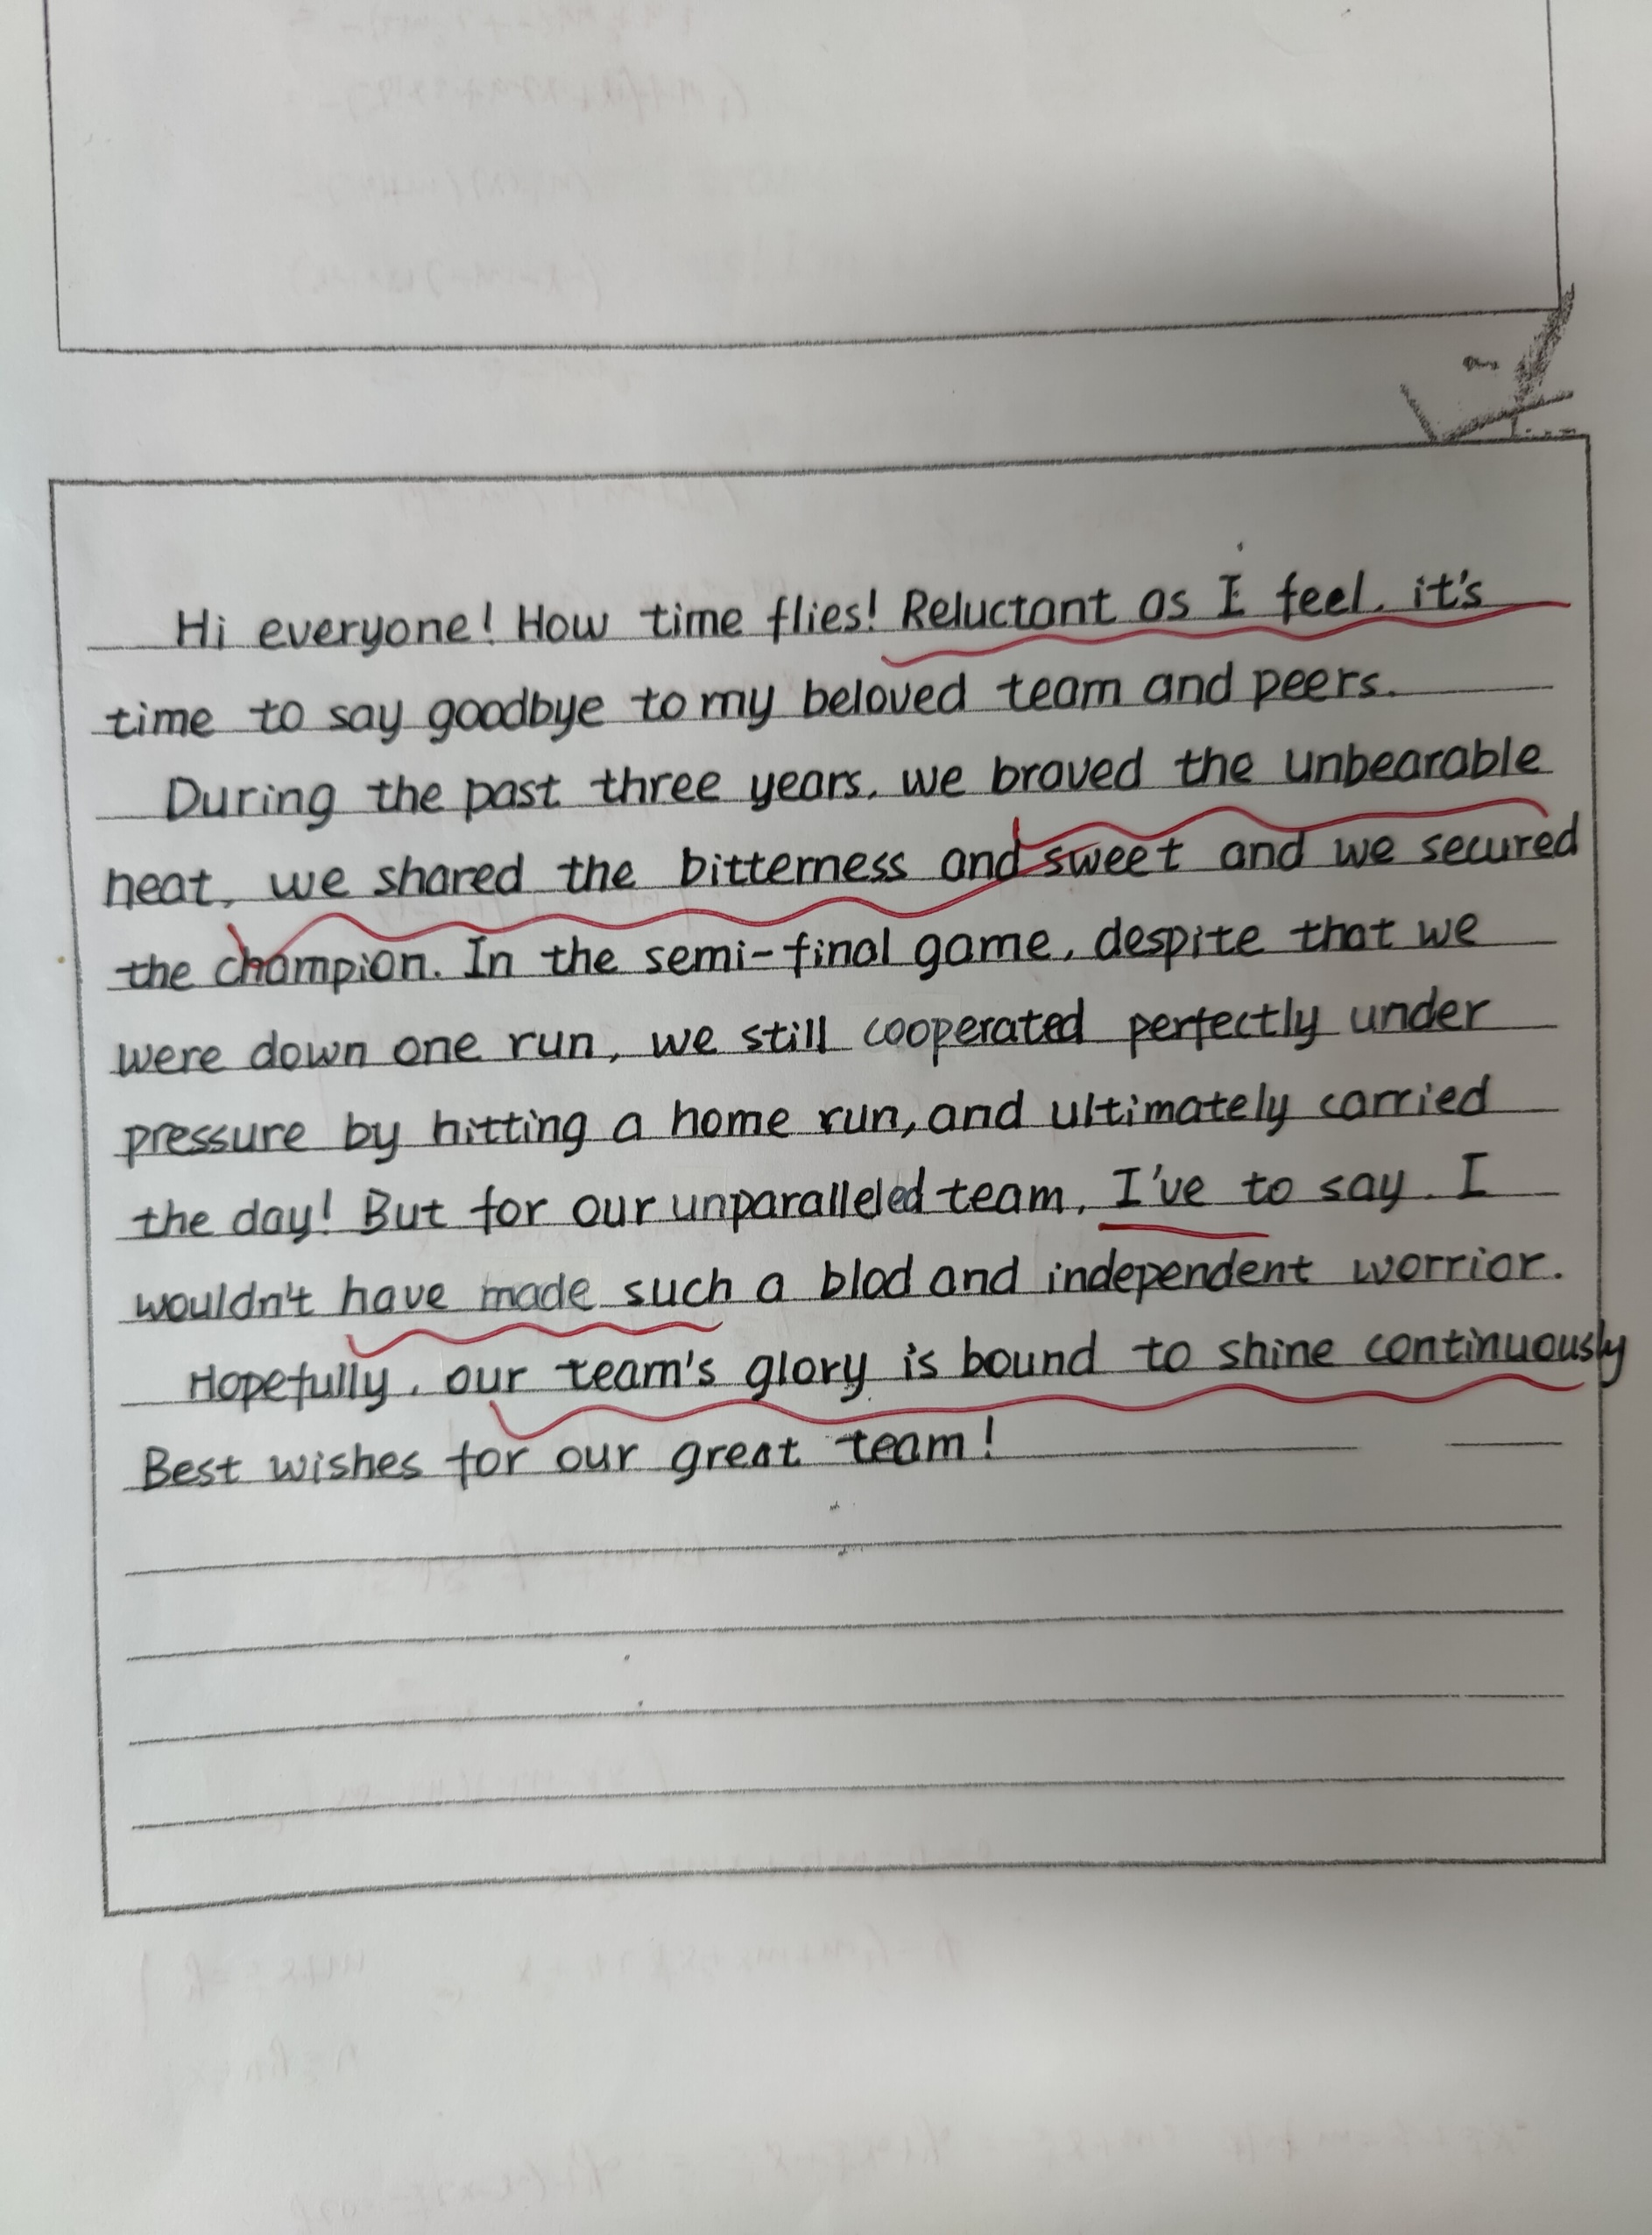 Hi everyone! How time flies! Reluctant as I feel, it's
time to say goodbye to my beloved team and peers.
During the past three years, we braved the unbearable
heat, we shared the bitterness and sweet and we secured
the champion. In the semi-final game, despite that we
were down one run, we still cooperated perfectly under
pressure by hitting a home run, and ultimately carried
the day! But for our unparalleled team, I've to say, I
wouldn't have made such a blod and independent worrior.
Hopefully, our team's glory is bound to shine continuously
Best wishes for our great team!